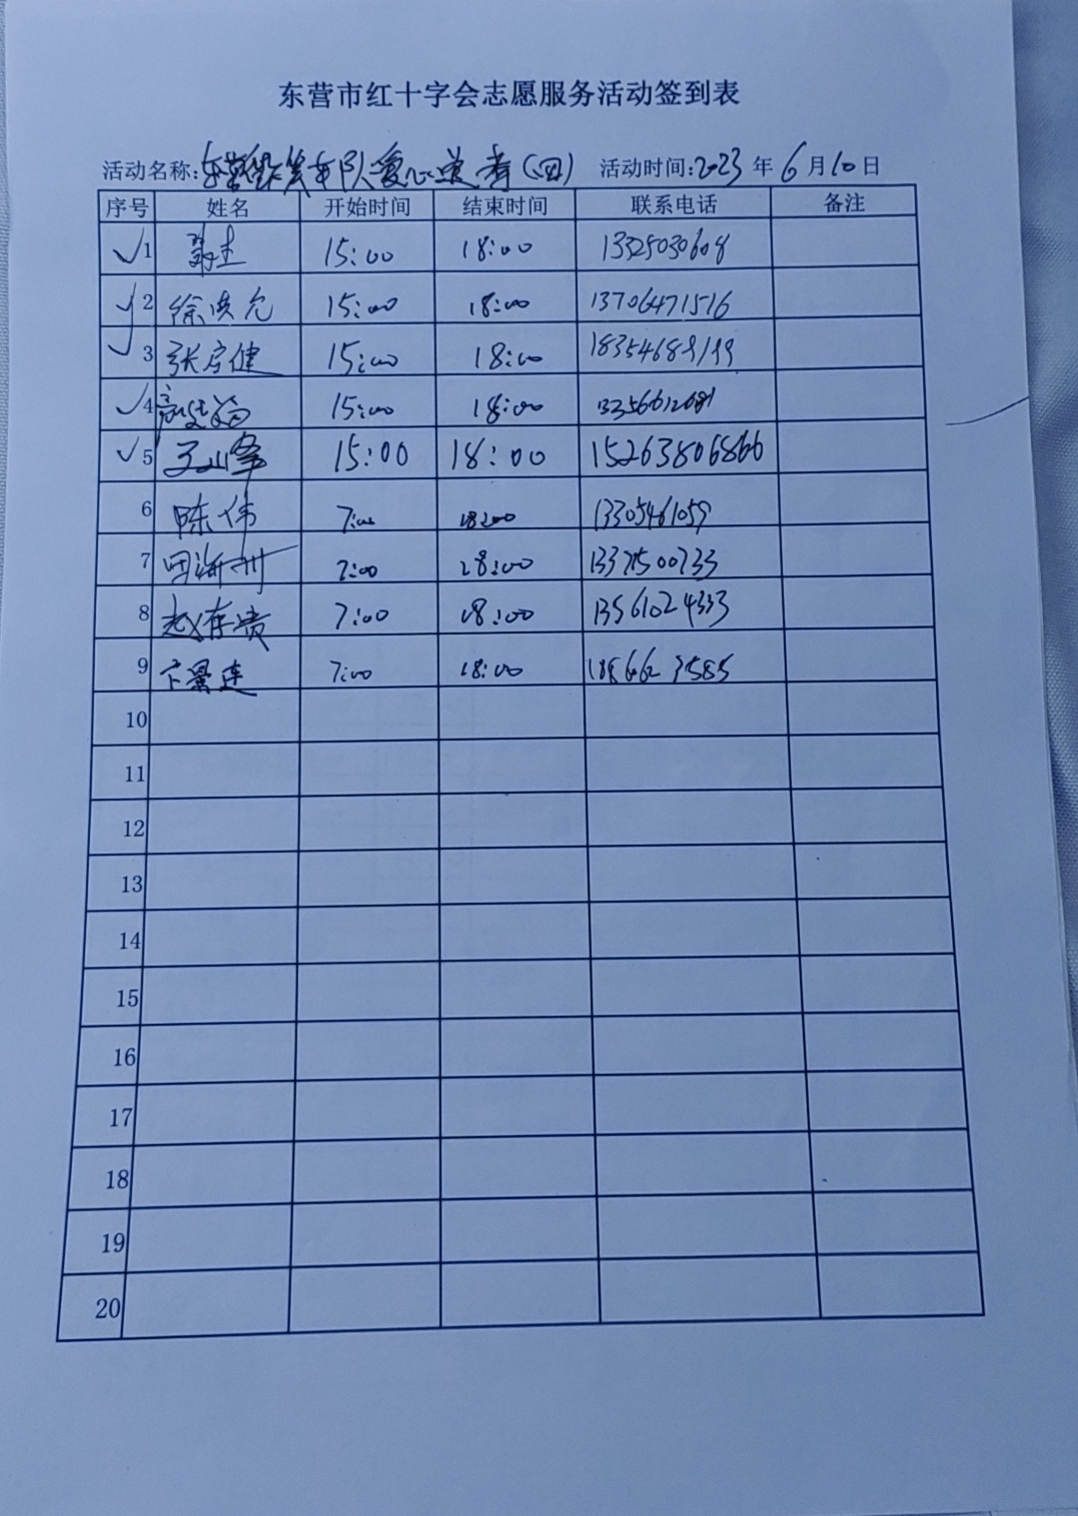 东营市红十字会志愿服务活动签到表
活动名称: 车队爱心送考(四) 活动时间:2023年6月10日
序号 姓名 开始时间 结束时间 联系电话 备注
✓1 15:00 18:00 1325030608
✓2 徐洪允 15:00 18:00 13706471516
✓3 张宗健 15:00 18:00
✓4 15:00 18:00
✓5 15:00 18:00 15263806866
6 陈伟 7:00 18:00 13305461059
7 田海州 7:00 18:00
8 赵存贵 7:00 18:00 13561024333
9 卞景连 7:00 18:00
10
11
12
13
14
15
16
17
18
19
20